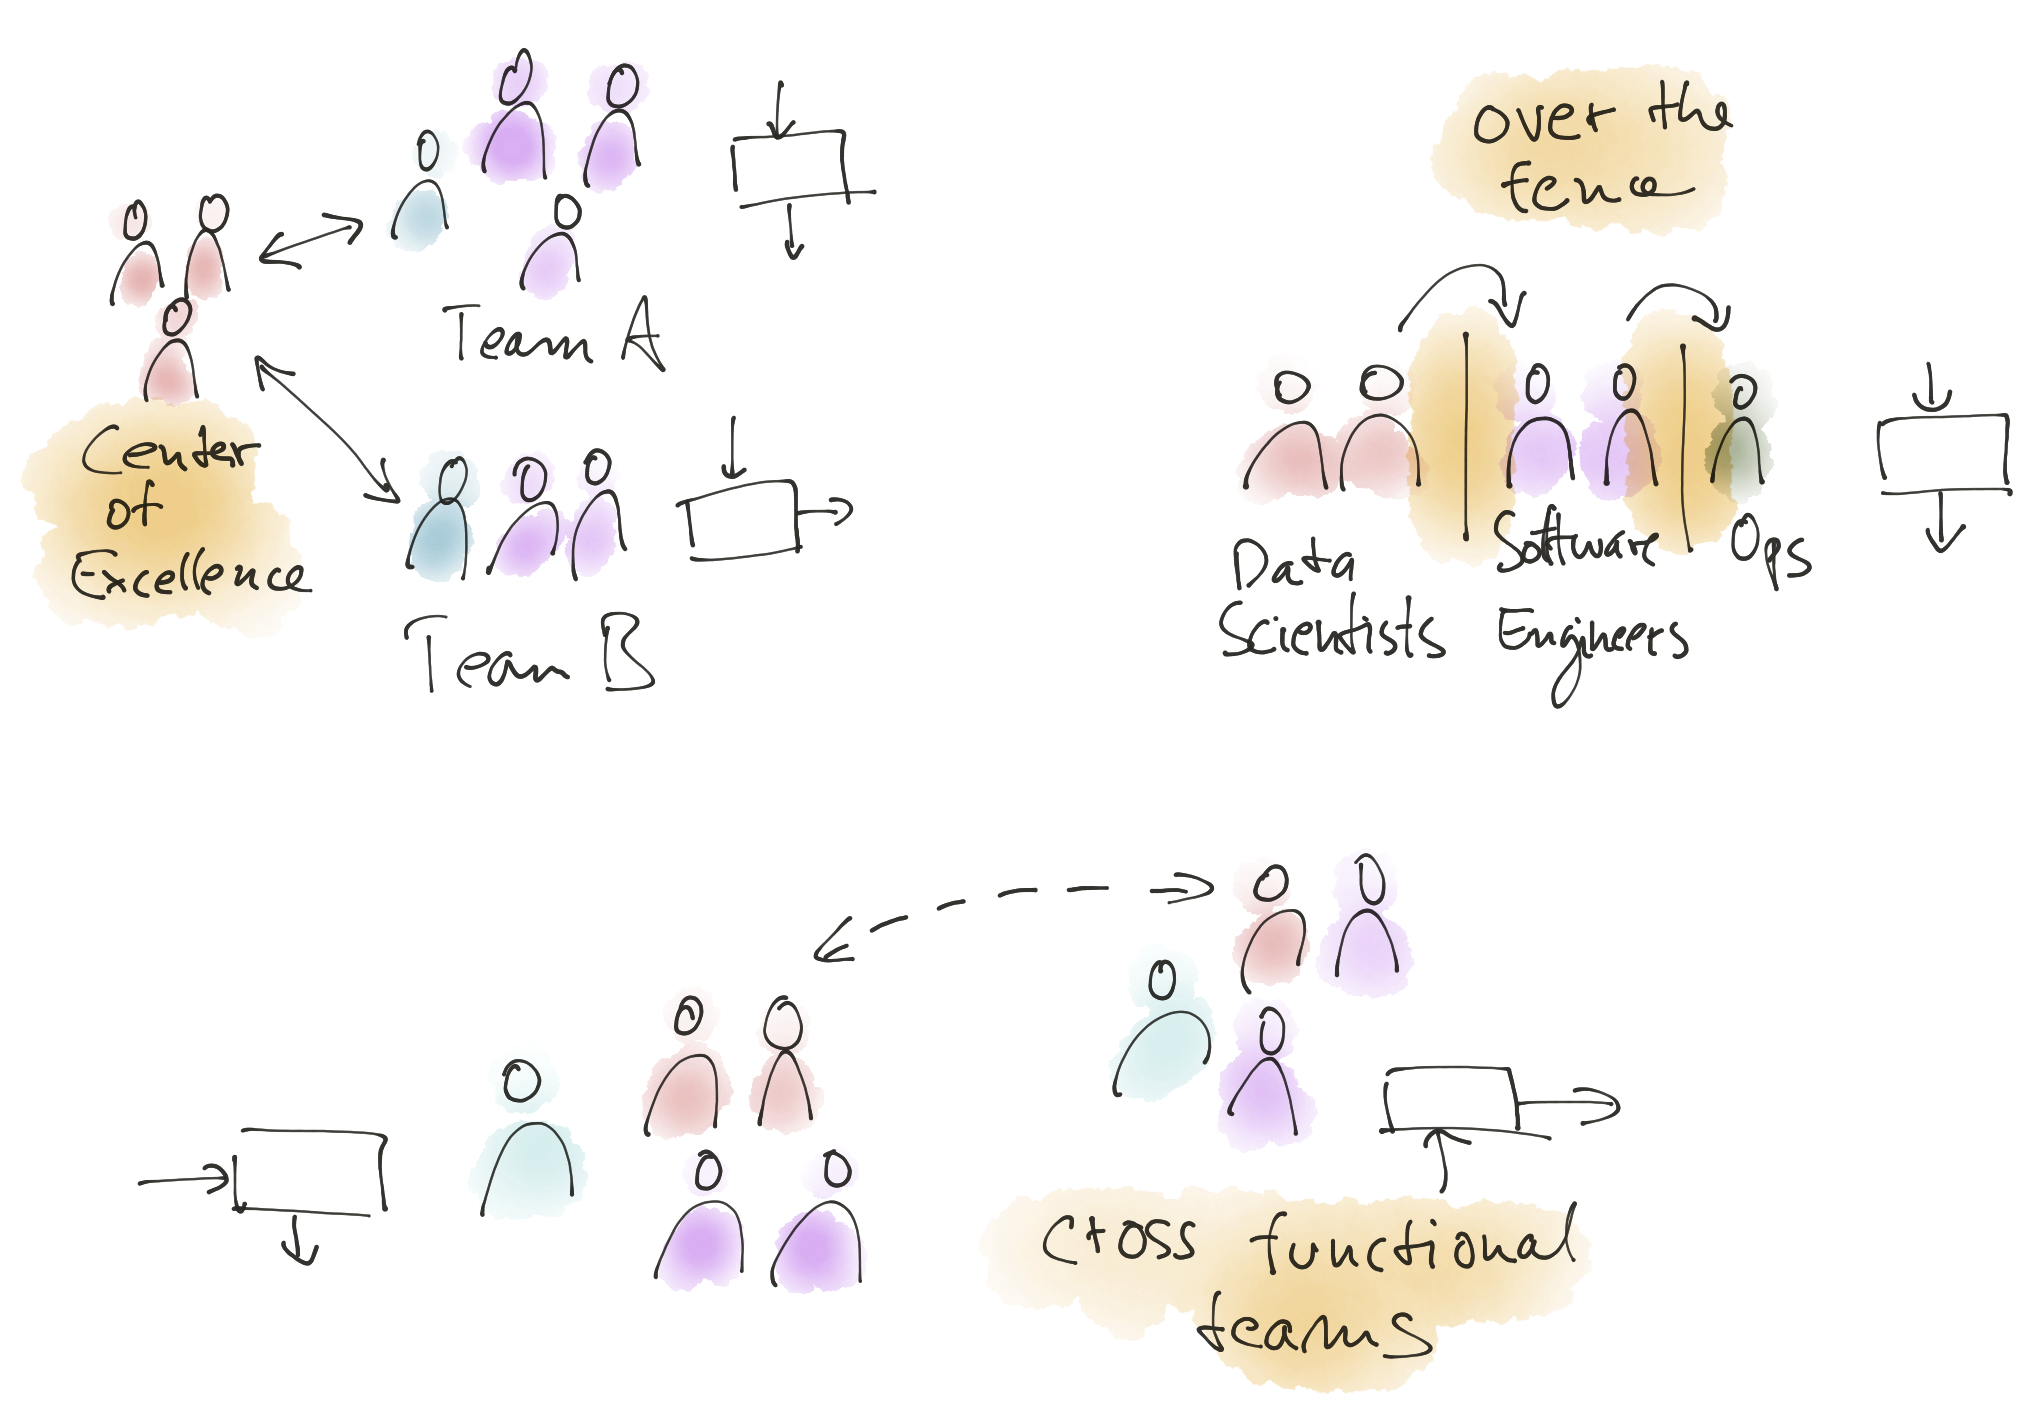 Team A
Center
of
Excellence
Team B
over the
fence
Data
Scientists
Software
Engineers
Ops
cross functional
teams